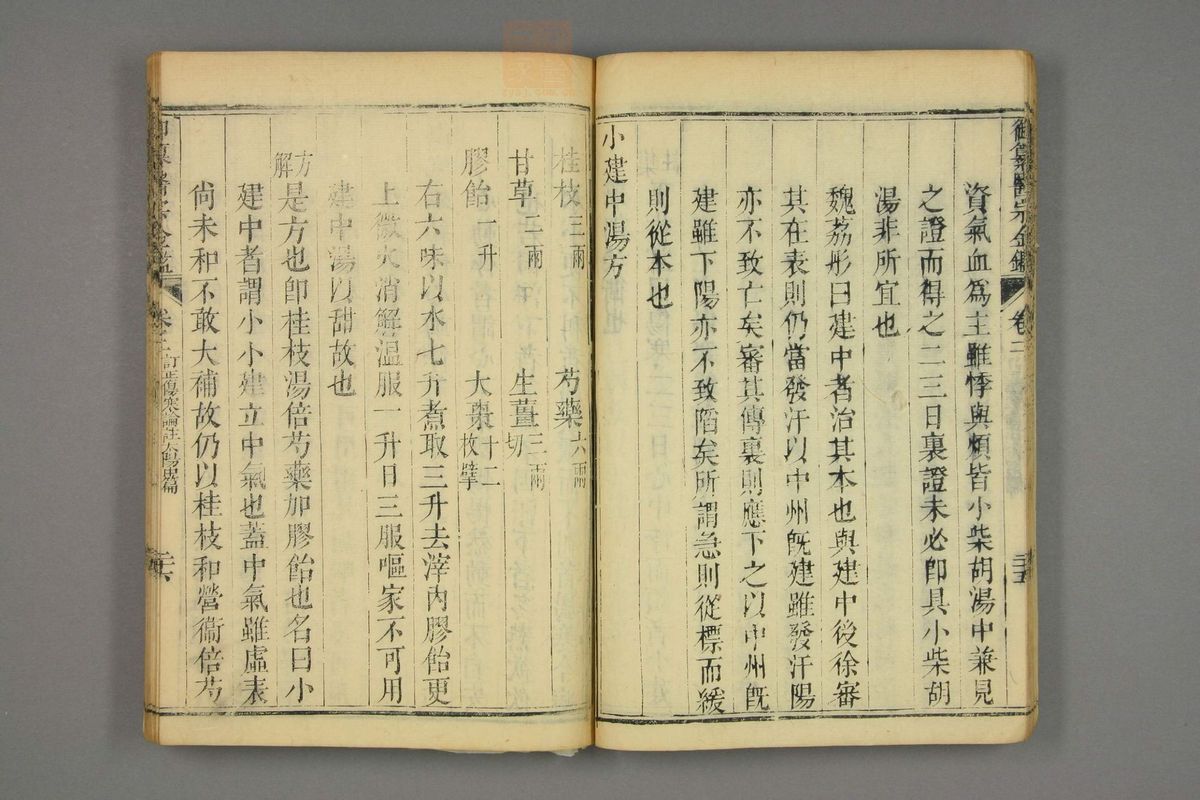 御纂醫宗金鑑 卷二 二十五
資氣血為主雖悸與煩皆小柴胡湯中兼見
之證而得之二三日裏證未必卽具小柴胡
湯非所宜也
魏荔彤曰建中者治其本也與建中後徐審
其在表則仍當發汗以中州旣建雖發汗陽
亦不致亡矣審其傳裏則應下之以中州旣
建雖下陽亦不致陷矣所謂急則從標而緩
則從本也
小建中湯方
桂枝三兩 芍藥六兩
甘草二兩 生薑三兩切
膠飴一升 大棗十二枚擘
右六味以水七升煮取三升去滓內膠飴更
上微火消解溫服一升日三服嘔家不可用
建中湯以甜故也
方解是方也卽桂枝湯倍芍藥加膠飴也名曰小
建中者謂小小建立中氣也蓋中氣雖虛表
尚未和不敢大補故仍以桂枝和營衞倍芍
醫宗金鑑 卷二 訂正傷寒論註太陽中篇 二十六